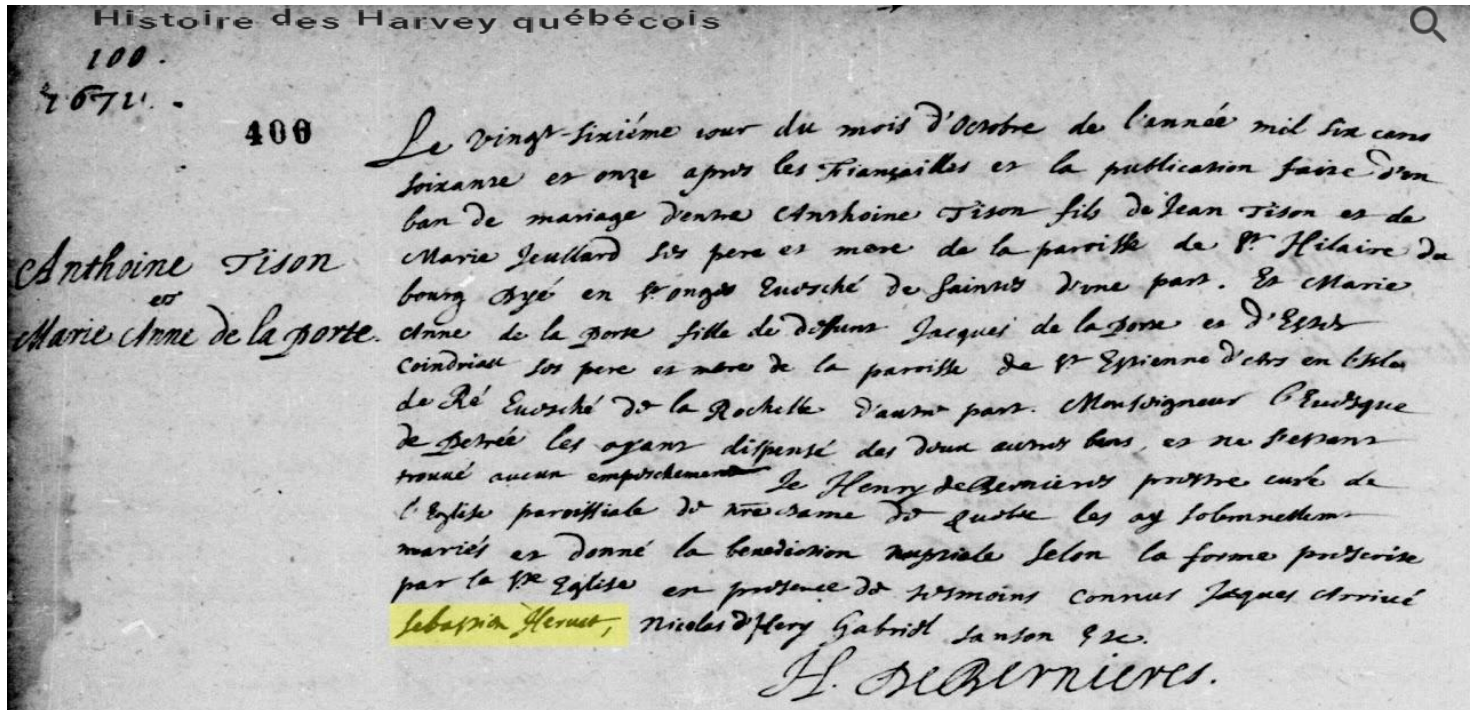 Histoire des Harvey québécois
100.
1671.
400
Anthoine Tison
et
Marie Anne de la porte.
Le vingt-sixiéme iour du mois d'Octobre de l'année mil six cens
soixante et onze apres les Fiançailles et la publication faite d'un
ban de mariage d'entre Anthoine Tison fils de Jean Tison et de
Marie Jeullard ses pere et mere de la paroisse de St Hilaire du
bourg en St onges Euesché de Saintes d'une part. Et Marie
Anne de la porte fille de deffunt Jacques de la porte et d'Ester
Coindriau ses pere et mere de la paroisse de St Estienne d'Ars en l'isle
de Ré Euesché de la Rochelle d'autre part. Monseigneur l'Euesque
de Petrée les ayant dispensé des deux autres bans, et ne s'estant
trouué aucun empeschement Je Henry de Bernieres prestre curé de
l'Eglise paroissiale de nre Dame de Quebec les ay solemnellemt
mariés et donné la benediction nuptiale selon la forme prescrite
par la Ste Eglise en presence de tesmoins connus Jaques Arriué
Sebastien Heruet, Nicolas Gabriel Sanson &c.
H. de Bernieres.